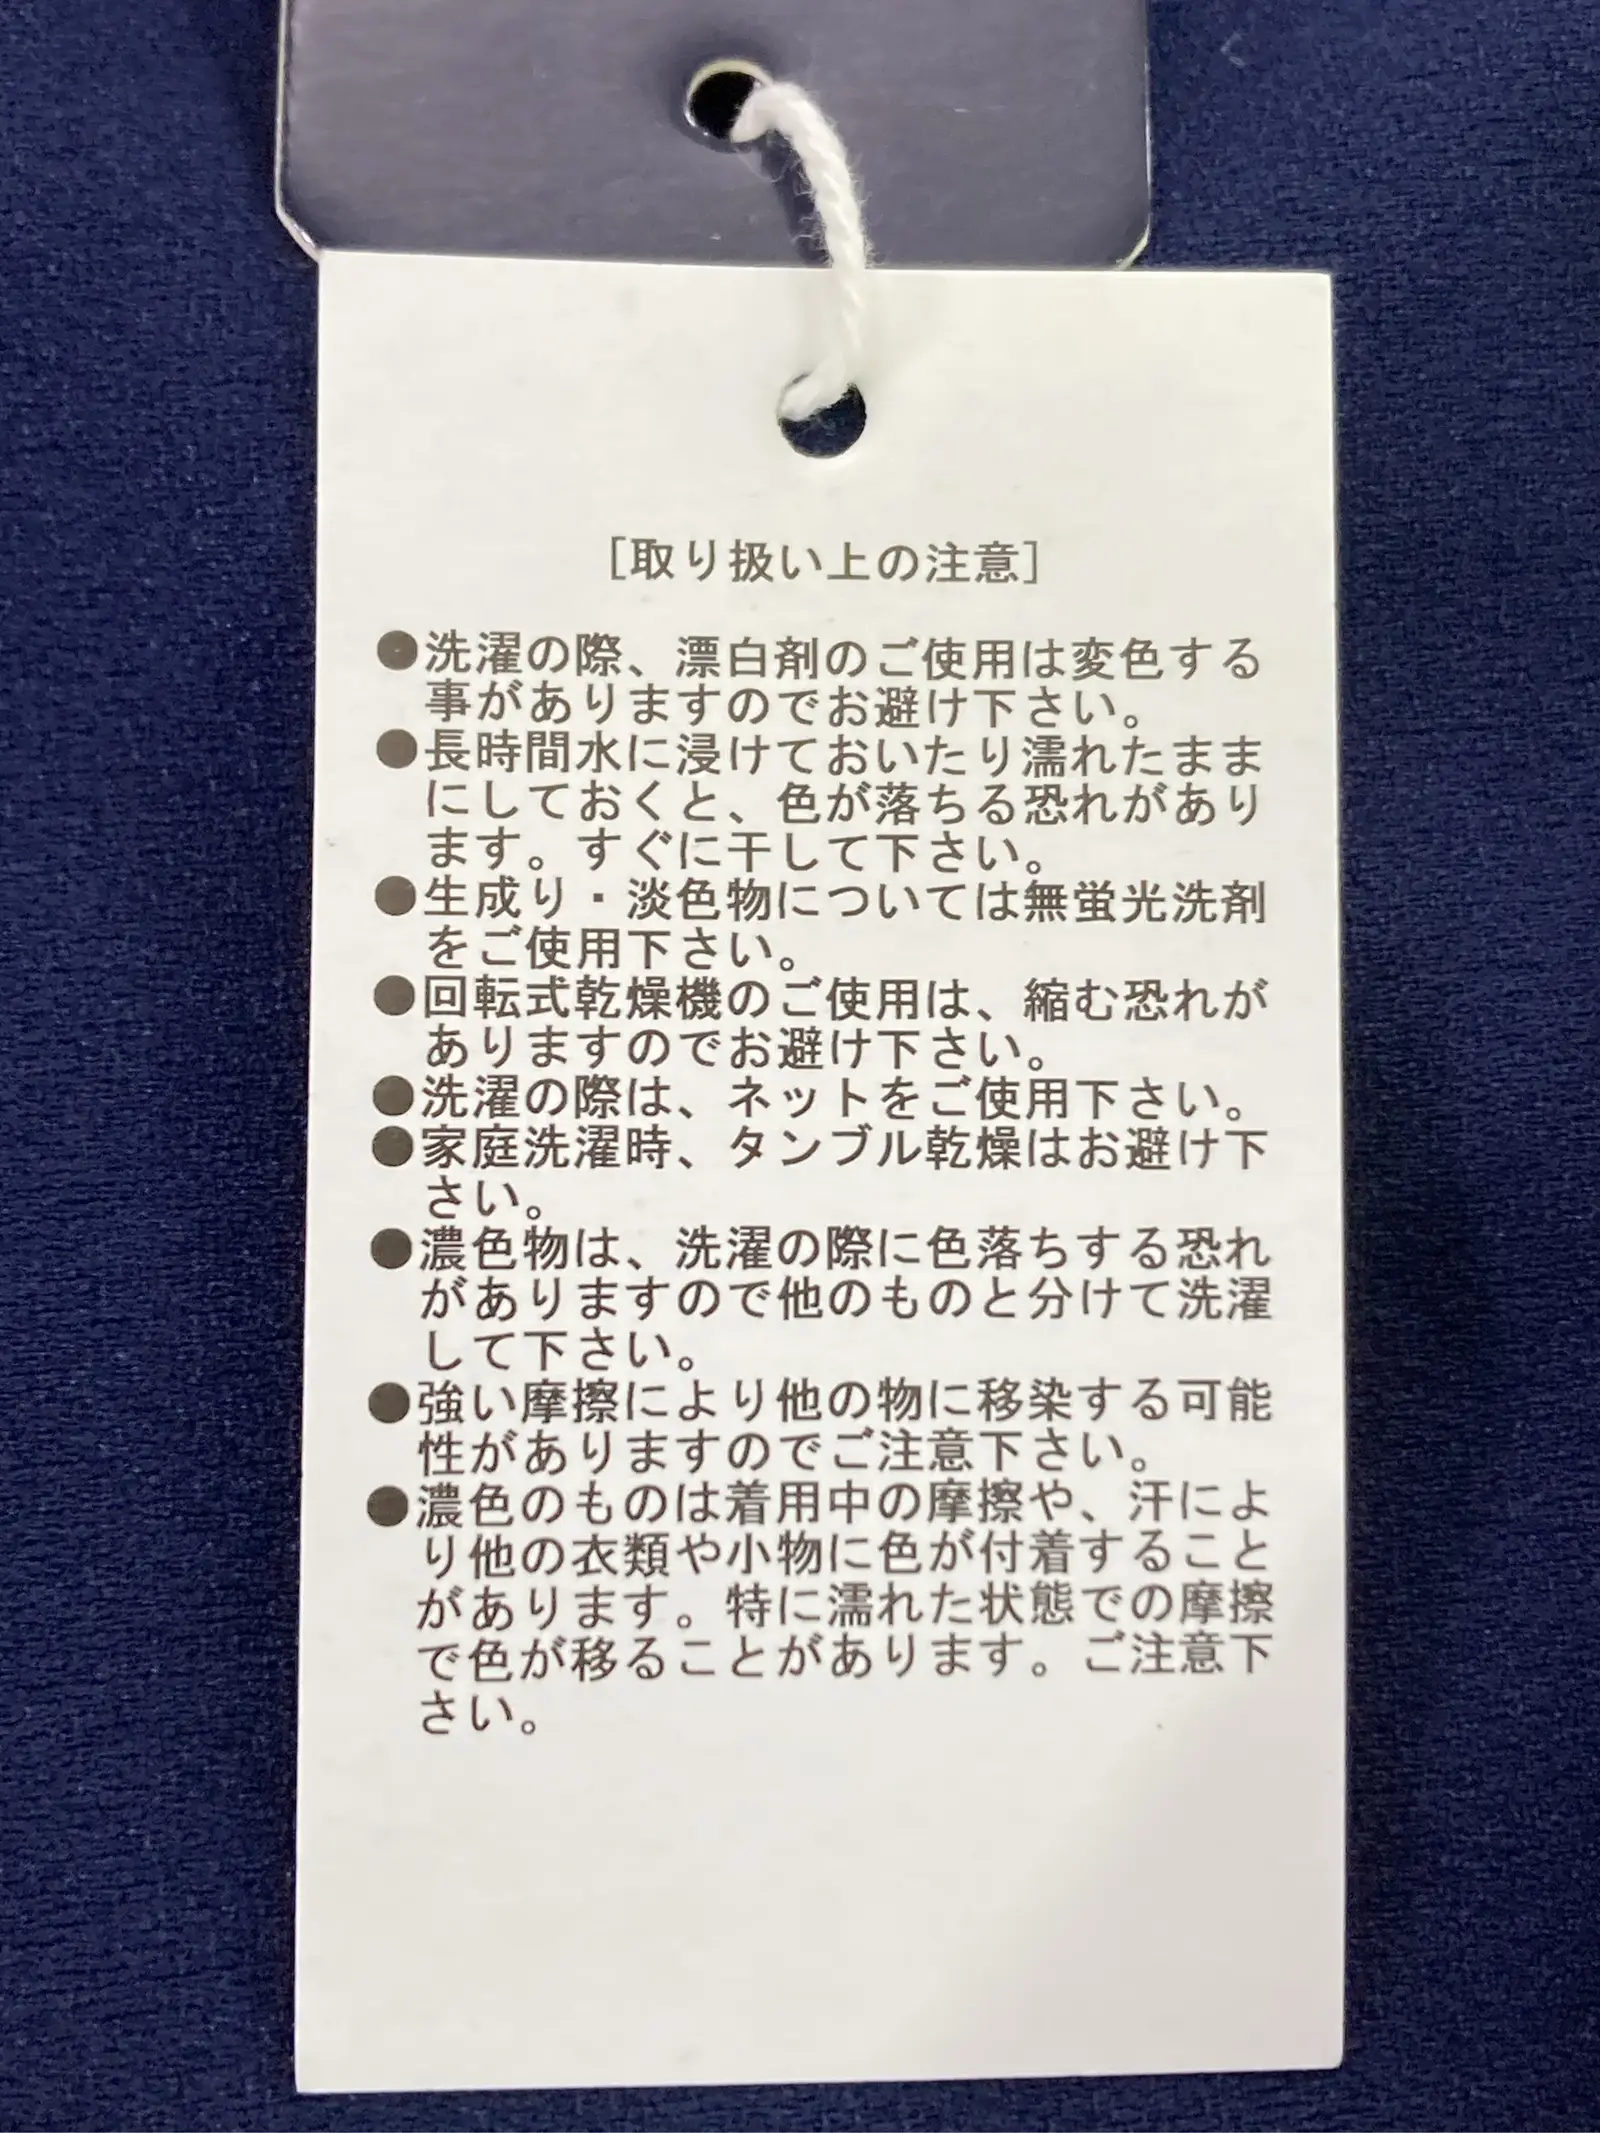 [取り扱い上の注意]
●洗濯の際、漂白剤のご使用は変色する
事がありますのでお避け下さい。
●長時間水に浸けておいたり濡れたまま
にしておくと、色が落ちる恐れがあり
ます。すぐに干して下さい。
●生成り・淡色物については無蛍光洗剤
をご使用下さい。
●回転式乾燥機のご使用は、縮む恐れが
ありますのでお避け下さい。
●洗濯の際は、ネットをご使用下さい。
●家庭洗濯時、タンブル乾燥はお避け下
さい。
●濃色物は、洗濯の際に色落ちする恐れ
がありますので他のものと分けて洗濯
して下さい。
●強い摩擦により他の物に移染する可能
性がありますのでご注意下さい。
●濃色のものは着用中の摩擦や、汗によ
り他の衣類や小物に色が付着すること
があります。特に濡れた状態での摩擦
で色が移ることがあります。ご注意下
さい。